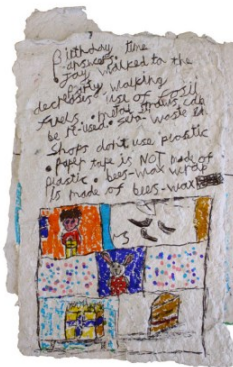 Birthday time
answers:
• Jay walked to the
party, walking
decreases use of fosil
fuels. • metal straws can
be re-used. • sero-waste st
Shops dont use plastic
• paper tape is NOT made of
plastic • bees-wax wrap
is made of bees-wax